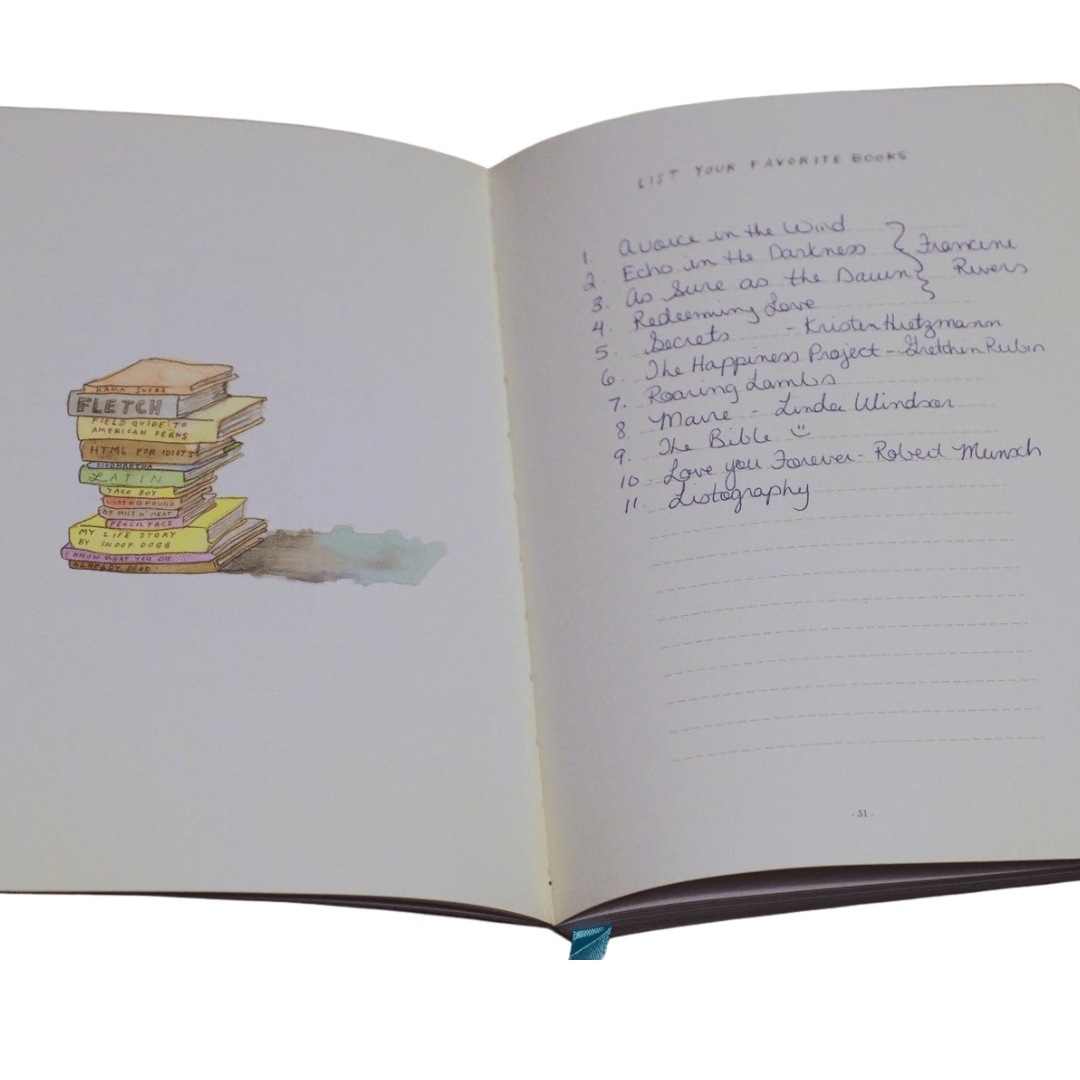 KAMA SUTRA
FLETCH
FIELD GUIDE TO
AMERICAN FERNS
HTML FOR IDIOTS
SIDDHARTHA
LATIN
TACO BOY
OF MICE N' MEAT
PENCIL FACE
MY LIFE STORY
BY SNOOP DOGG
I KNOW WHAT YOU DIE
ALREADY DEAD
LIST YOUR FAVORITE BOOKS
1. A voice in the Wind
2. Echo in the Darkness } Francine
3. As Sure as the Dawn } Rivers
4. Redeeming Love
5. Secrets - Kristen Hietzmann
6. The Happiness Project - Gretchin Rubin
7. Roaring Lambs
8. Maire - Linda Windsor
9. The Bible ☺
10. Love you Forever - Robert Munsch
11. Listography
- 31 -